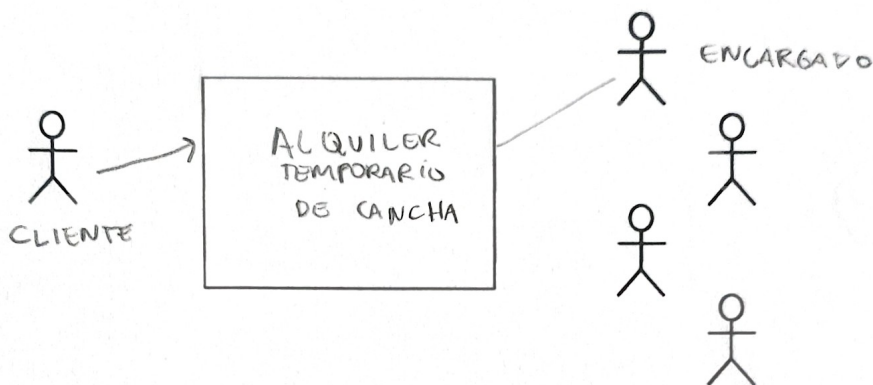 CLIENTE
ALQUILER
TEMPORARIO
DE CANCHA
ENCARGADO